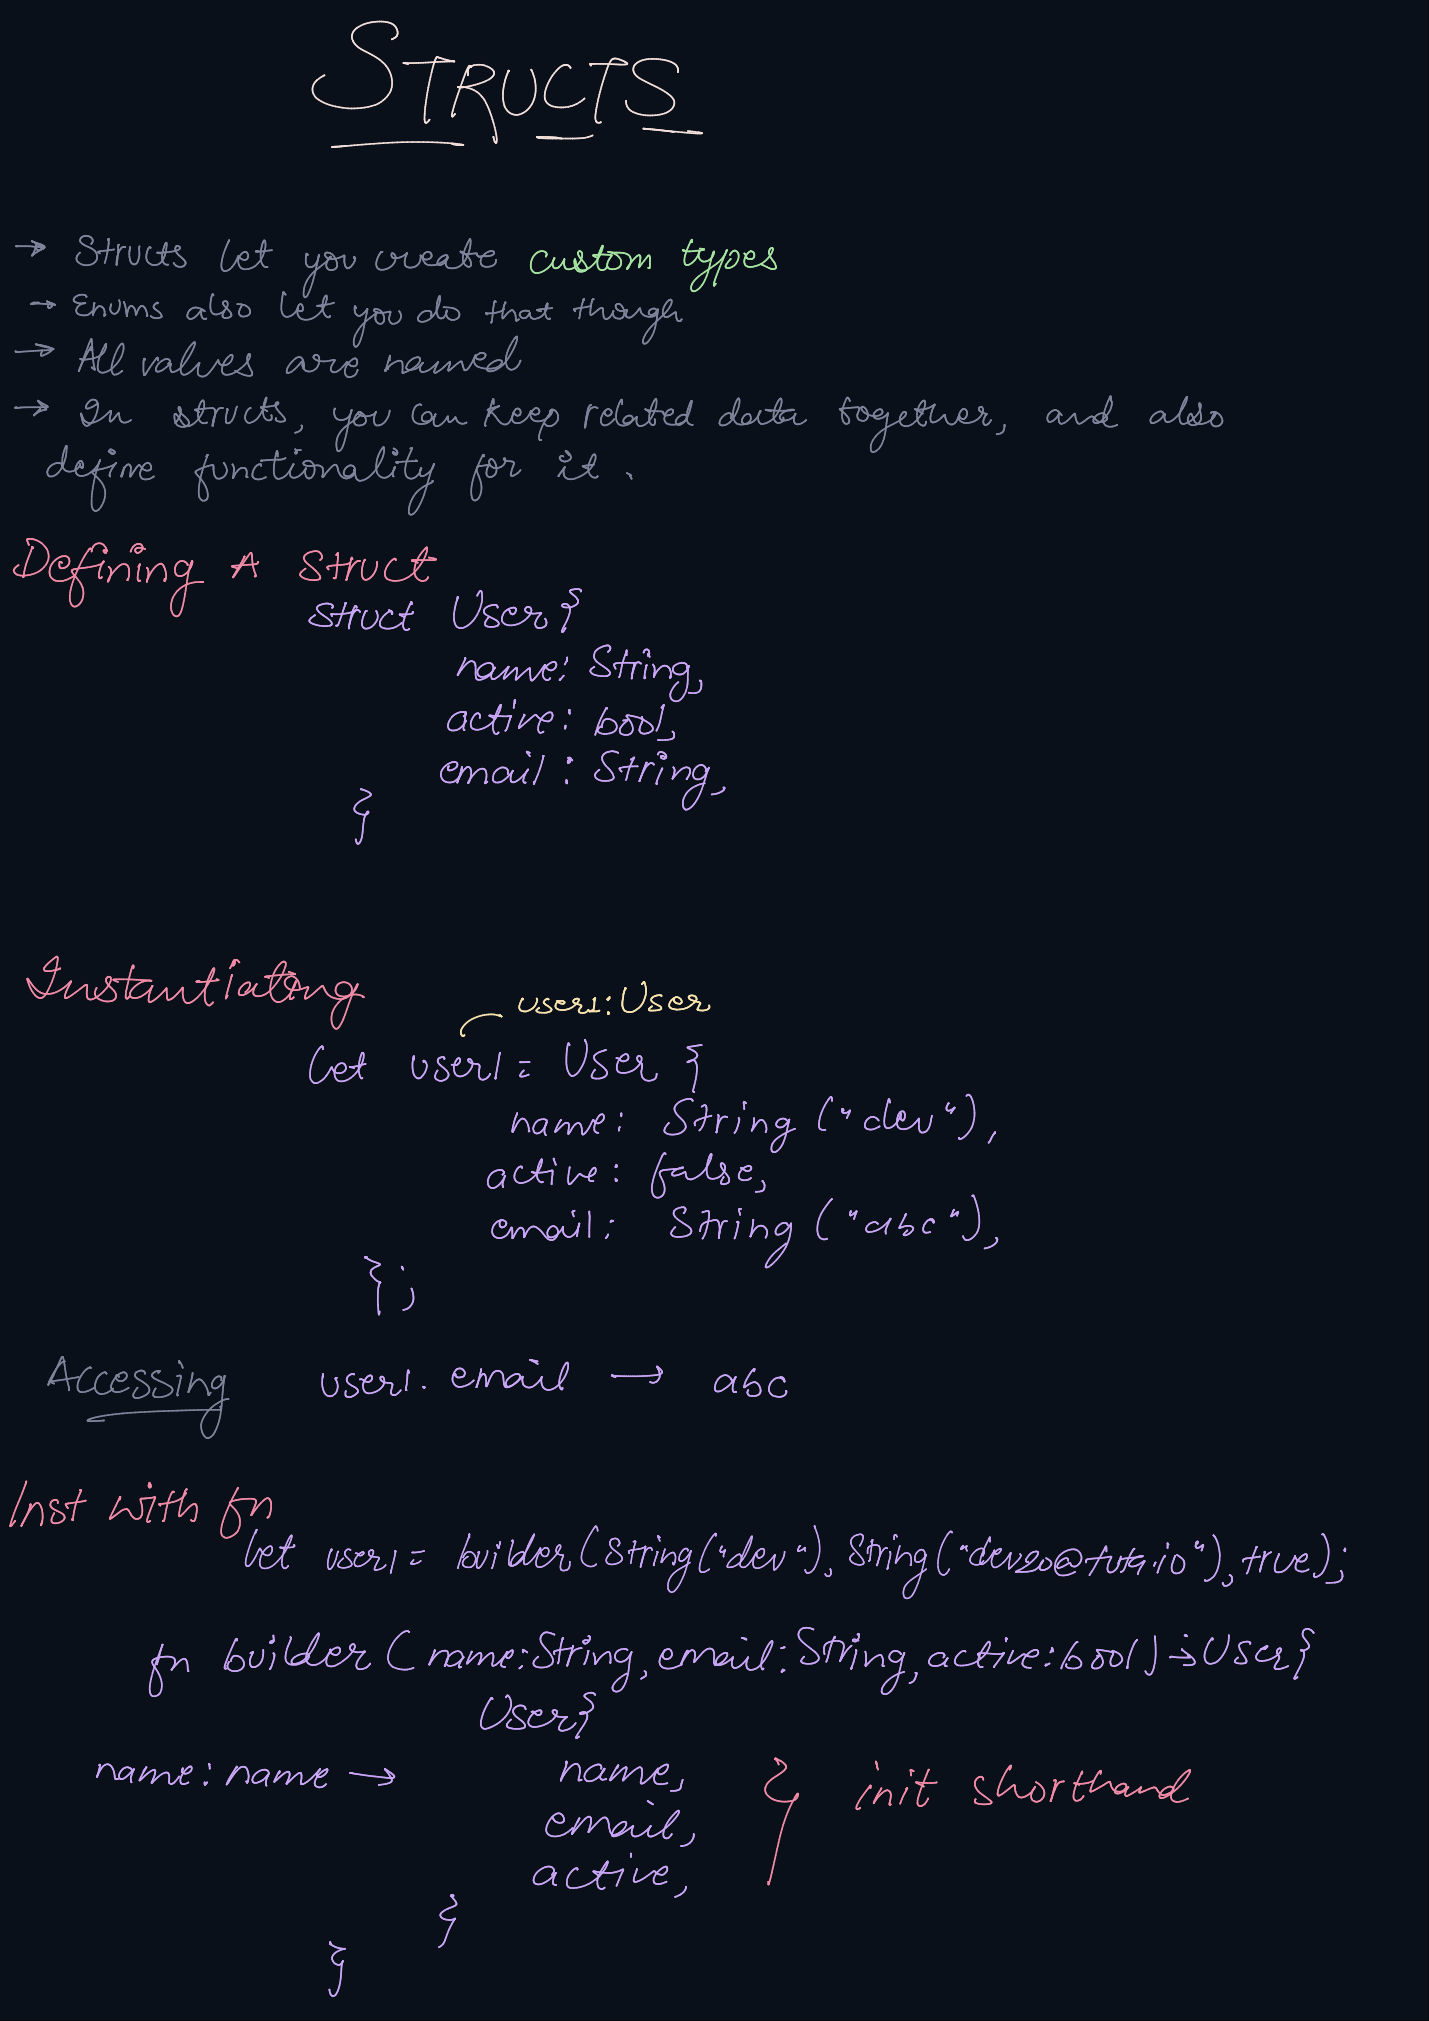 STRUCTS
→ Structs let you create custom types
→ Enums also let you do that though
→ All values are named
→ In structs, you can keep related data together, and also
define functionality for it.
Defining A Struct
struct User {
name: String,
active: bool,
email: String,
}
Instantiating
user1: User
let user1 = User {
name: String ("dev"),
active: false,
email: String ("abc"),
};
Accessing user1.email → abc
Inst with fn
let user1 = builder(String("dev"), String("dev20@tuta.io"), true);
fn builder (name: String, email: String, active: bool) → User {
User {
name: name → name,
email,
active,
} init shorthand
}
}